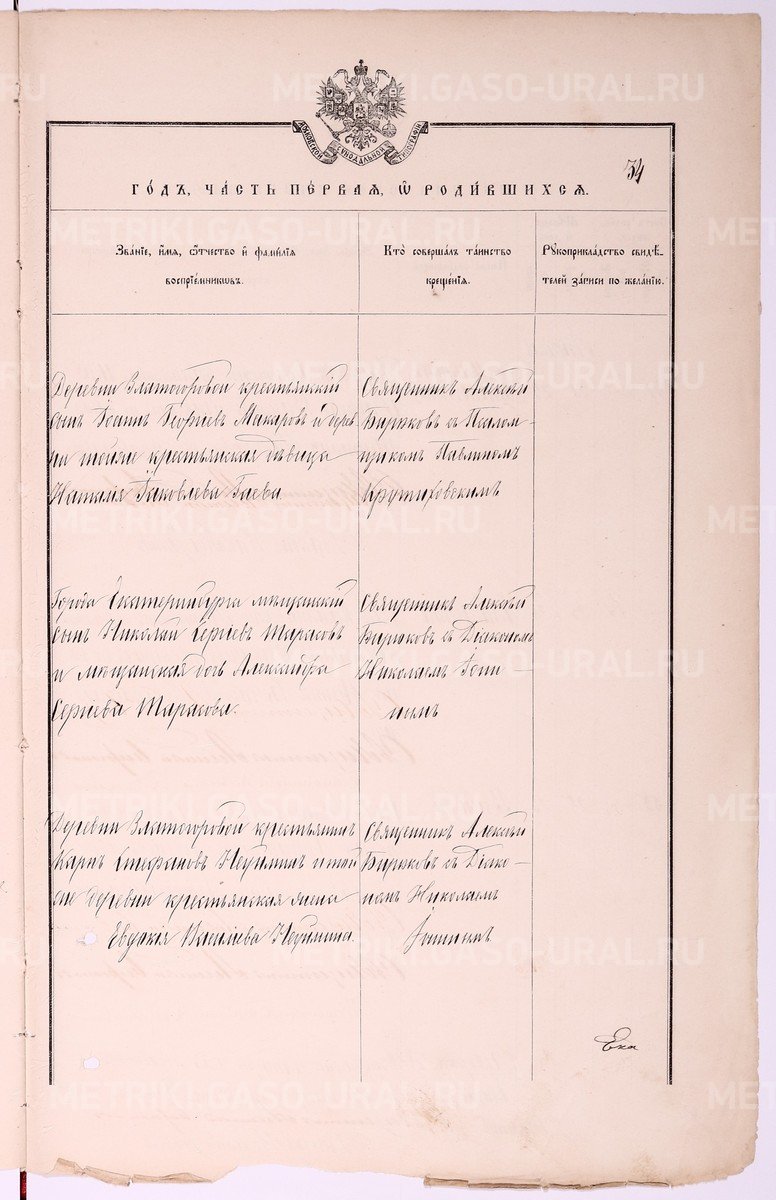 34
МОСКОВСКОЙ СѴНОДАЛЬНОЙ ТИПОГРАФІИ
ГО́ДЪ, ЧА́СТЬ ПЕ́РВАЯ, Ѽ РОДИ́ВШИХСЯ.
Зва́нїе, и҆́мя, ѻ҆́тчество и҆ фами́лїя
воспрїе́мникѡвъ.
Кто̀ соверша́лъ та́инство
креще́нїя.
Рукоприкла́дство свидѣ́-
телей за́писи по жела́нїю.
Деревни Златогоровой крестьянскій
сынъ Іоаннъ Георгіевъ Макаровъ и дерев
ни тойже крестьянская дѣвица
Наталія Іаковлева Гаева
Священникъ Алексѣй
Бирюковъ съ Псалом-
щикомъ Павлиномъ
Крутиховскимъ
Города Екатеринбурга мѣщанскій
сынъ Николай Сергіевъ Тарасовъ
и мѣщанская дочь Александра
Сергіева Тарасова.
Священникъ Алексѣй
Бирюковъ съ Діакономъ
Николаемъ Іони-
нымъ
Деревни Златогоровой крестьянинъ
Карпъ Стефановъ Неуйминъ и той
же деревни крестьянская жена
Евдокія Василіева Неуймина.
Священникъ Алексѣй
Бирюковъ съ Діако-
номъ Николаемъ
Іонинымъ
Ека
METRIKI.GASO-URAL.RU